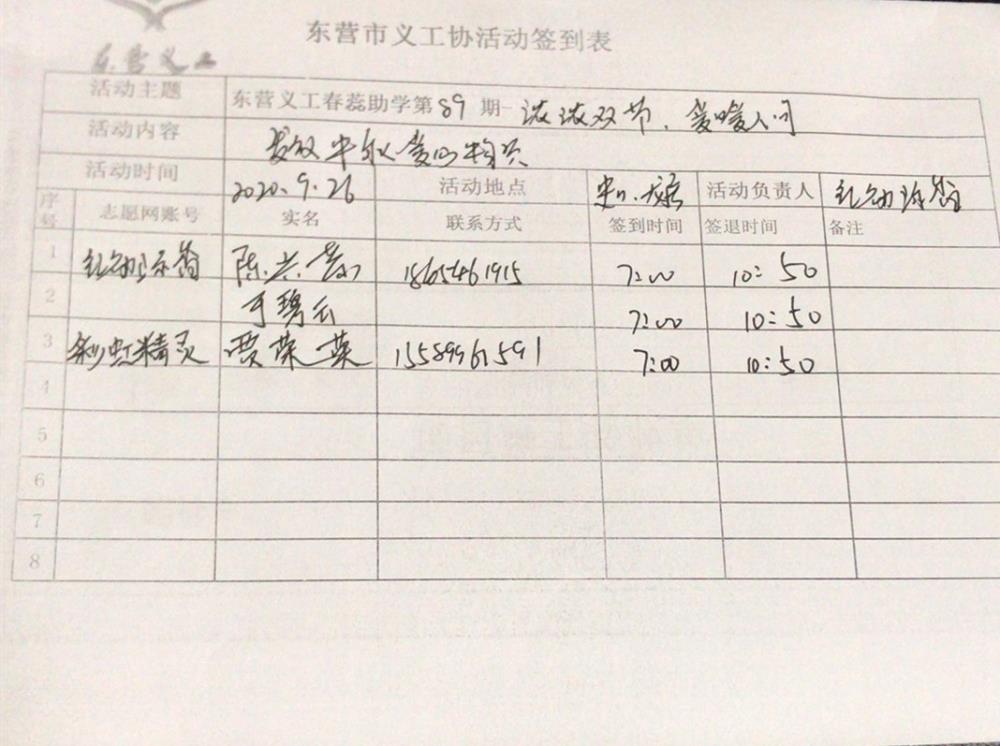 东营市义工协活动签到表
东营义工
活动主题 东营义工春蕊助学第89期-浓浓双节，爱暖人间
活动内容 发放中秋爱心物资
活动时间 2020.9.26 活动地点 活动负责人
序号 志愿网账号 实名 联系方式 签到时间 签退时间 备注
1 陈兴 18654461915 7:00 10:50
2 于碧云 7:00 10:50
3 彩虹精灵 贾荣荣 15589961591 7:00 10:50
4
5
6
7
8